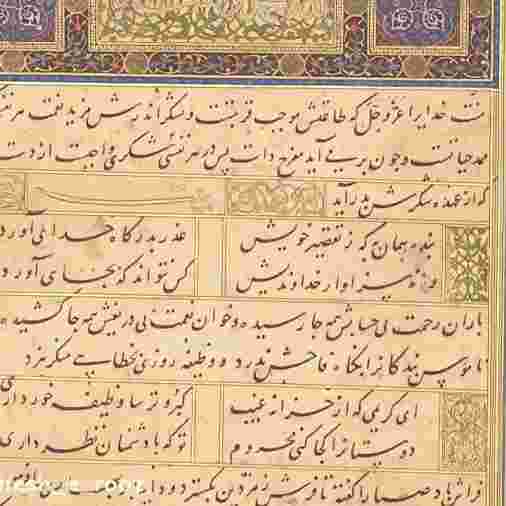 منت خدایرا عز و جل که طاعتش موجب قربتست و بشکر اندرش مزید نعمت هر نفسی
ممد حیاتست و چون بر می آید مفرح ذات پس در هر نفسی شکری واجبست از دست
که از عهده شکرش بدر آید
بنده همان به که ز تقصیر خویش عذر بدرگاه خدای آورد
ورنه سزاوار خداوندیش کس نتواند که بجای آورد
باران رحمت بی حسابش همه جا رسیده و خوان نعمت بی دریغش همه جا کشیده
ناموس بندگانرا بگناه فاحش ندرد و وظیفه روزی بخطای منکر نبرد
ای کریمی که از خزانه غیب کبر و ترسا وظیفه خور داری
دوستانرا کجا کنی محروم تو که با دشمنان نظر داری
فراش باد صبا را گفته تا فرش زمردین بگسترد و دایه